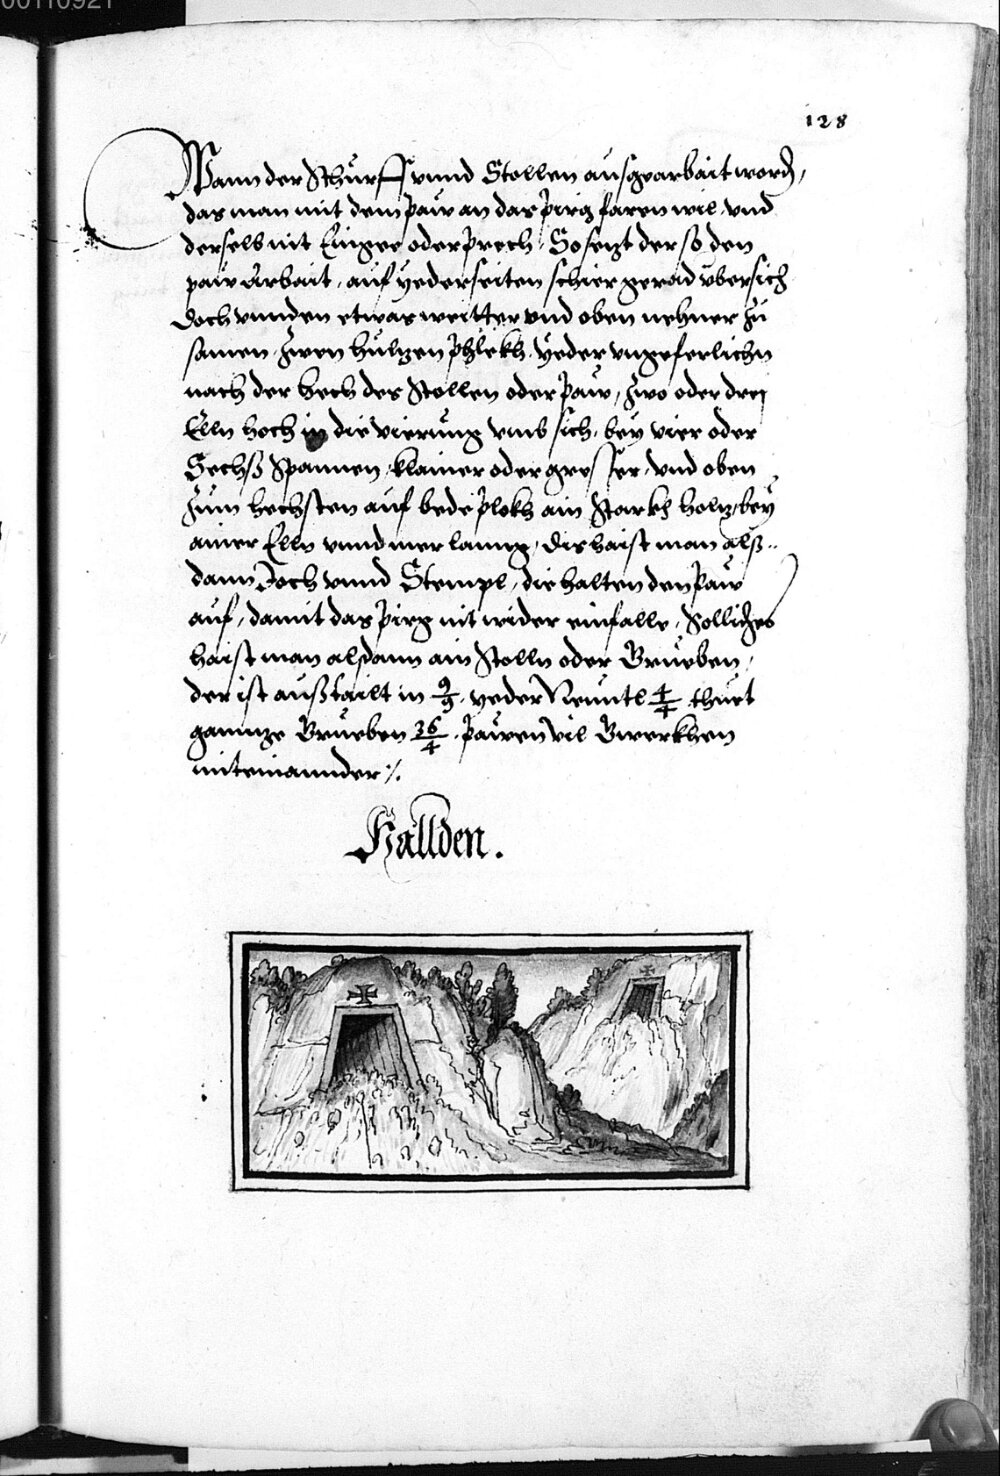 00110921
128
Wann der Schurff vnnd Stollen ausgearbait word,
das man mit dem paw an das pirg faren wil vnd
derselb nit Eingee oder prech, So setzt der so den
paw Arbait, auf yeder seiten schier gerad vbersich
doch vnnden etwas weitter vnd oben nehner zu
samen, zwen hultzen phlekh, yeder vngeferlichn
nach der hech des Stollen oder Paw, zwo oder drej
Elln hoch in die vierung vmb sich, bey vier oder
Sechß Spannen, klainer oder gresser, vnd oben
zum hechsten auf bede plekh ain Starkh holtz, bey
ainer Elln vnnd mer lanng, dis haist man alß
dann Joch vnnd Stempl, die halten den Paw
auf, damit das pirg nit wider einfalle, Solliches
haist man alßdann ain Stolln oder Grueben,
der ist außtailt in 9/9, yeder Neuntl 4/4 thuet
ganntze Grueben 36/4. Pawen vil Gwerkhen
miteinannder ⁒
Hallden.